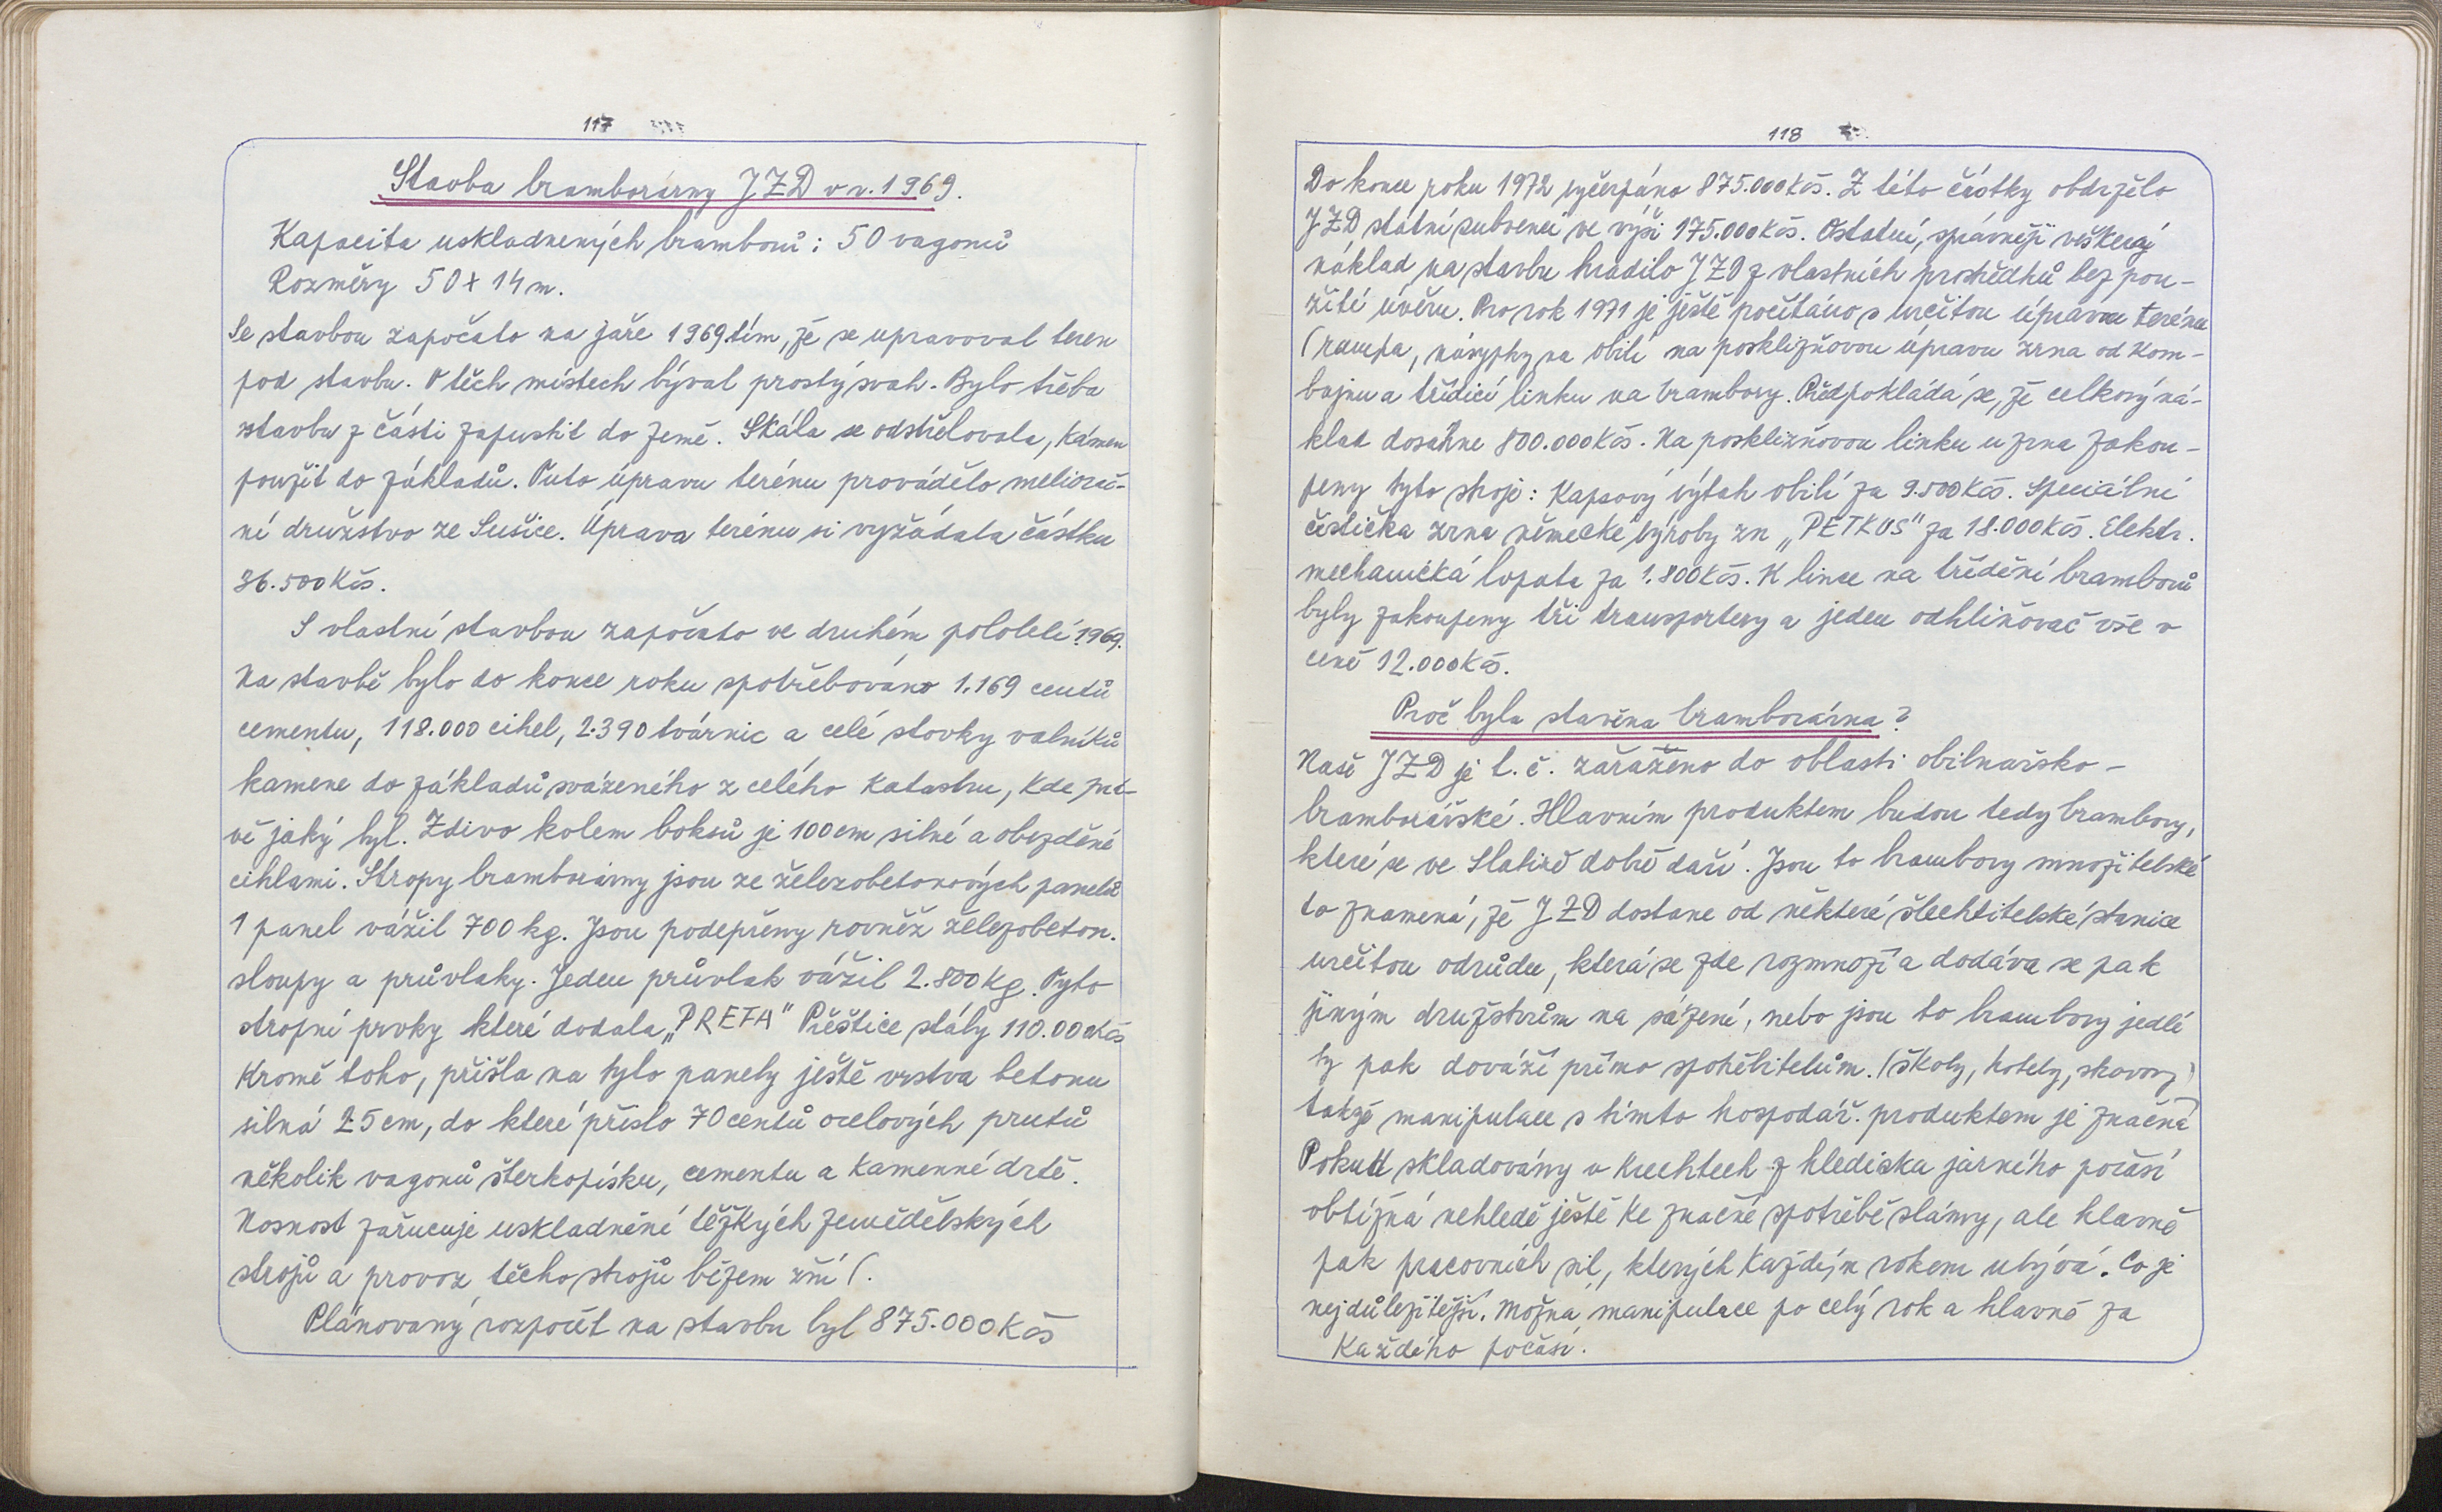 117
Stavba bramborárny JZD v r. 1969.
Kapacita uskladnených bramborů: 50 vagonů
Rozměry 50 x 14 m.
Se stavbou započato na jaře 1969 tím, že se upravoval teren
pod stavbu. V těch místech býval prostý svah. Bylo třeba
stavbu z části zapustit do země. Skála se odstřelovala, kámen
použit do základů. Tuto úpravu terénu provádělo meliorač-
ní družstvo ze Sušice. Úprava terénu si vyžádala částku
36.500 Kčs.
S vlastní stavbou započato ve druhém pololetí 1969.
Na stavbě bylo do konce roku spotřebováno 1.169 centů
cementu, 118.000 cihel, 2.390 tvárnic a celé stovky valníků
kamene do základů sváženého z celého katastru, kde prá-
vě jaký byl. Zdivo kolem boksů je 100 cm silné a obezděné
cihlami. Stropy bramborárny jsou ze železobetonových panelů
1 panel vážil 700 kg. Jsou podepřeny rovněž železobeton.
sloupy a průvlaky. Jeden průvlak vážil 2.800 kg. Tyto
stropní prvky které dodala "PREFA" Přeštice stály 110.000 Kčs
Kromě toho, přišla na tyto panely ještě vrstva betonu
silná 25 cm, do které přišlo 70 centů ocelových prutů
několik vagonů šterkopísku, cementu a kamenné drtě.
Nosnost zaručuje uskladnění těžkých zemědělských
strojů a provoz těchto strojů běžem žní (.
Plánovaný rozpočet na stavbu byl 875.000 Kčs
118
Do konce roku 1972 vyčerpáno 875.000 Kčs. Z této částky obdrželo
JZD státní subvenci ve výši 175.000 Kčs. Ostatní, správněji veškerý
náklad na stavbu hradilo JZD z vlastních prostředků bez pou-
žití úvěru. Pro rok 1971 je ještě počítáno s určitou úpravou terénu
(rampa, násypky na obilí na posklizňovou úpravu zrna od kom-
bajnu a třídicí linku na brambory. Předpokládá se, že celkový ná-
klad dosáhne 800.000 Kčs. Na posklizňovou linku u zrna zakou-
peny tyto stroje: Kapsový výtah obilí za 9.500 Kčs. Speciální
čistička zrna německé výroby zn "PETKUS" za 18.000 Kčs. Elektr.
mechanická lopata za 1.800 Kčs. K lince na třídění bramborů
byly zakoupeny tři transportery a jeden odhliňovač vše v
ceně 12.000 Kčs.
Proč byla stavěna bramborárna?
Naše JZD je t. č. zařaženo do oblasti obilnařsko-
bramborářské. Hlavním produktem budou tedy brambory,
které se ve Slatině dobře daří. Jsou to brambory množitelské
to znamená, že JZD dostane od některé šlechtitelské stanice
určitou odrůdu, která se zde rozmnoží a dodáva se pak
jiným družstvům na sázení, nebo jsou to brambory jedlé
ty pak dováží přímo spotřebitelům. (školy, hotely,
takže manipulace s tímto hospodář. produktem je značná
Pokud skladovány v krechtech z hlediska jarního počasí
obtížná nehledě ještě ke značné spotřebě slámy, ale hlavně
pak pracovních sil, kterých každým rokem ubývá. Co je
nejdůležitější. Možná manipulace po celý rok a hlavně za
každého počasí.